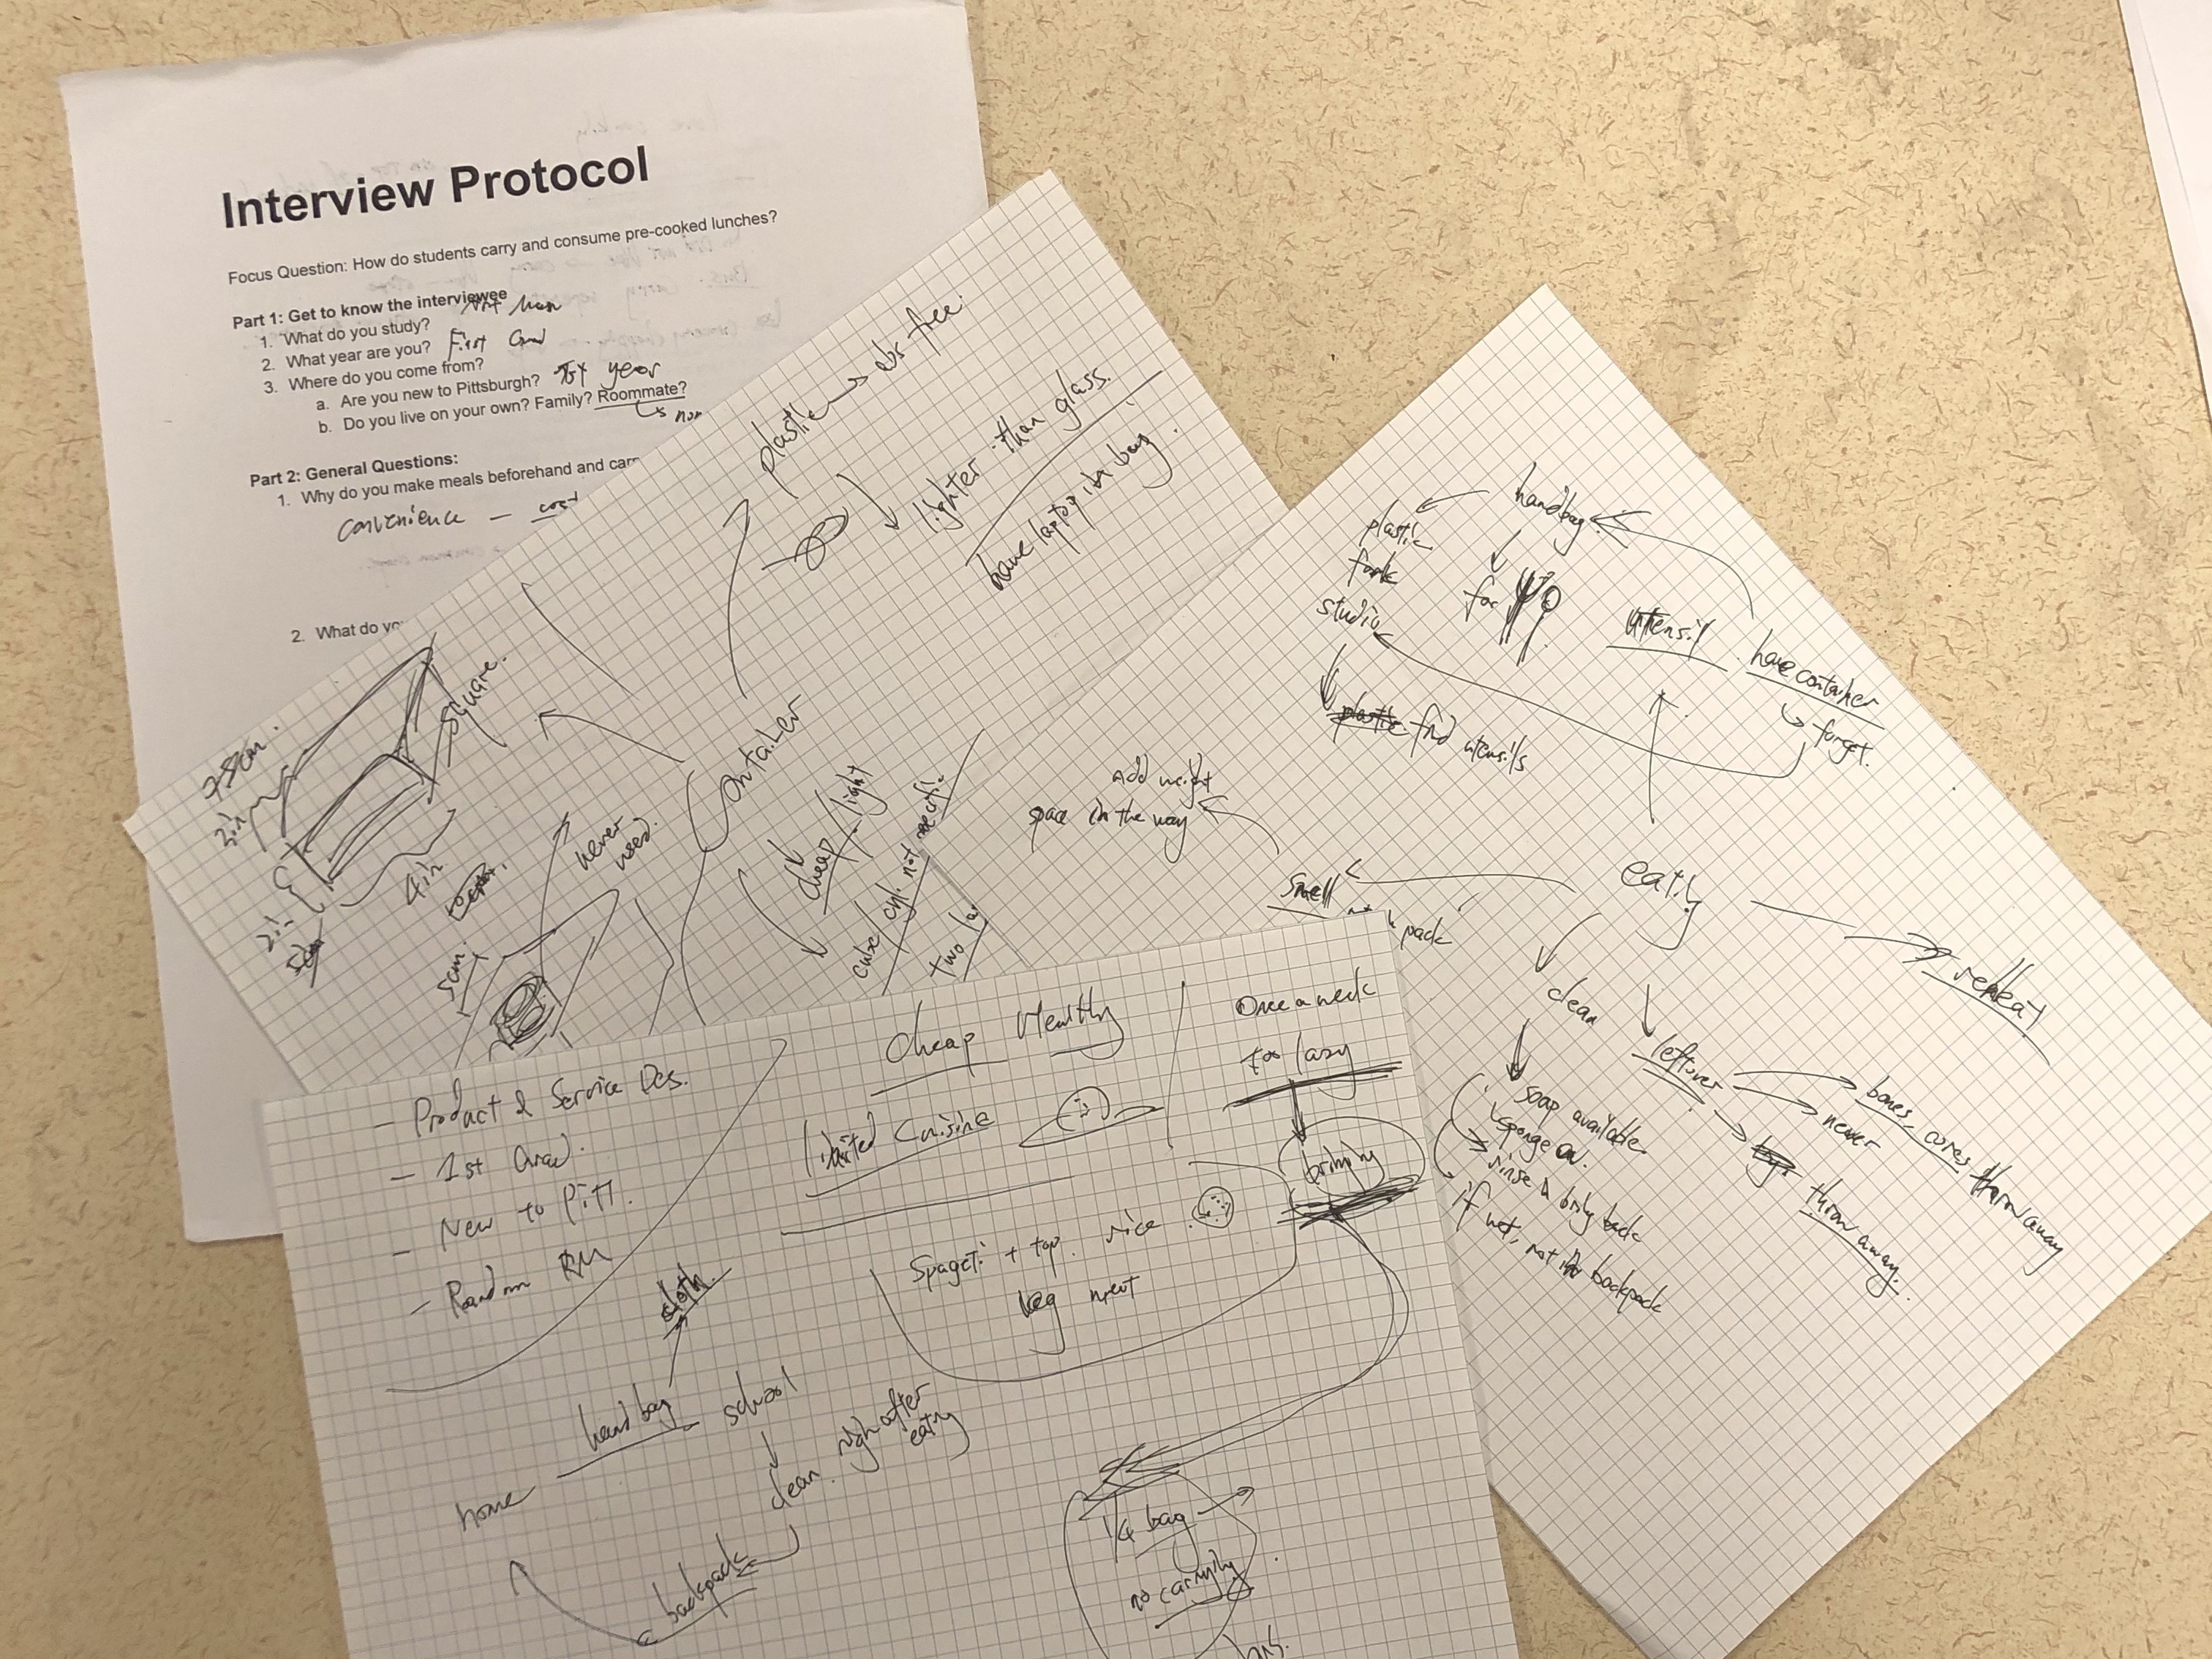 Interview Protocol
Focus Question: How do students carry and consume pre-cooked lunches?
Part 1: Get to know the interviewee
1. What do you study?
2. What year are you? First Grad
3. Where do you come from?
a. Are you new to Pittsburgh? 1st year
b. Do you live on your own? Family? Roommate?
Part 2: General Questions:
1. Why do you make meals beforehand and
convenience —
2. What do
plastic → abs free.
lighter than glass.
have laptop in bag.
square.
2in
4in
2in
5cm
never
used.
container
cheap/light
cube/cyl. not
two
handbag
plastic
fork
for
studio
utensil
have container
forget.
find utensils
Add weight
space in the way
smell
pack
eatig
reheat
clean
leftover
bones, cores, throw away
never
throw away.
soap available
sponge
rinse & brig back
if not, not in backpack
- Product & Service Des.
- 1st Grad.
- New to Pitt.
- Random RM
Cheap Healthy
limited Cuisine
Once a week
too lazy
bringing
Spageti + top. rice
veg meat
cloth
home
handbag
school
clean. righ after
eatig
backpack
1/4 bag
no carrying